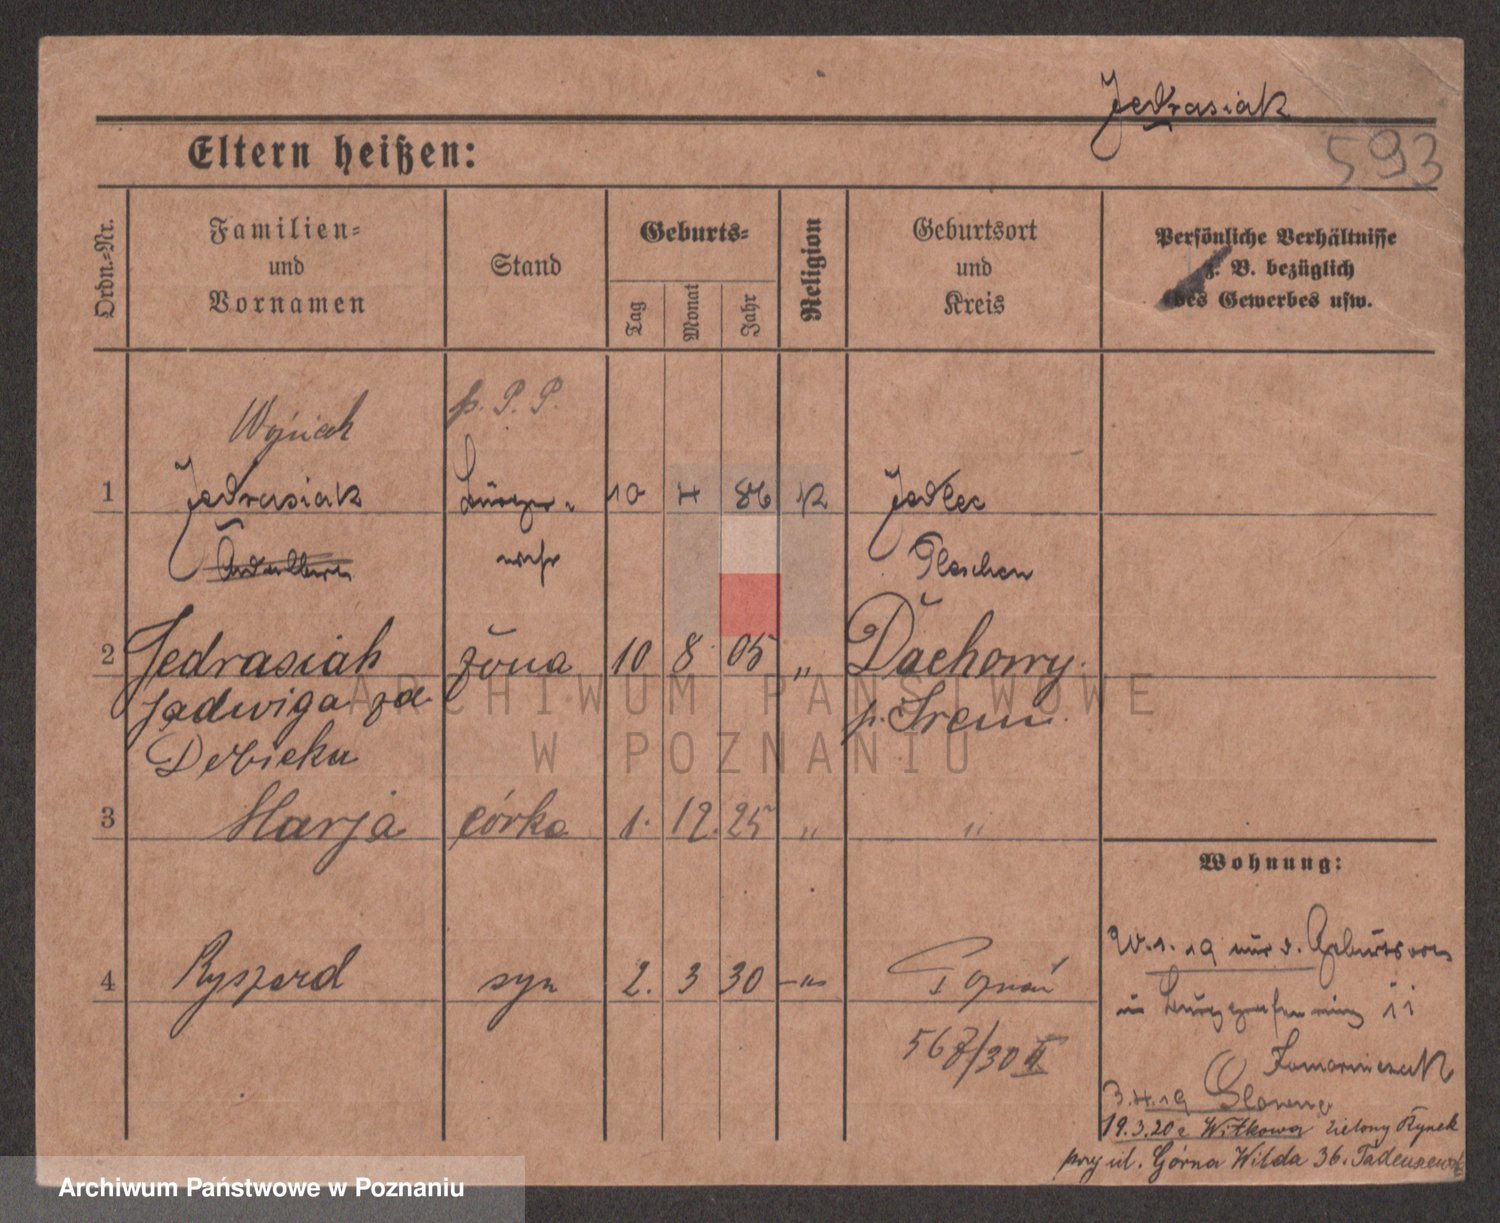 Jedrasiak
593
Eltern heißen:
Ordn.=Nr.
Familien=
und
Vornamen
Stand
Geburts=
Tag
Monat
Jahr
Religion
Geburtsort
und
Kreis
Persönliche Verhältnisse
z. B. bezüglich
des Gewerbes usw.
p. P. P.
1 Jedrasiak Bürger- 10 4 86 K Jedlec
wehr Pleschen
2 Jedrasiak żona 10 8 05 „ Dachowy.
Jadwiga zd. p. Śrem.
3 Marja córka 1. 12. 25 „ „
Wohnung:
4 Ryszard syn 2. 3 30 -„- Poznań
567/30 II
3.4.19 Glowno
19.3.20 z Witkowa Zielony Rynek
przy ul. Górna Wilda 36.
ARCHIWUM PAŃSTWOWE
W POZNANIU
Archiwum Państwowe w Poznaniu